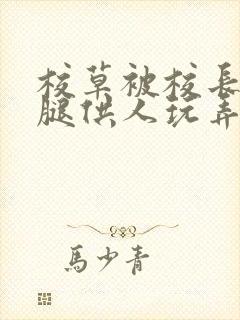 校草被校長
腿供人玩弄
馬少青